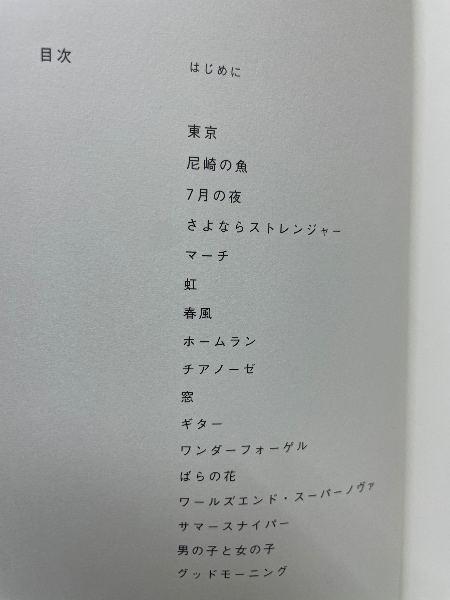 目次
はじめに
東京
尼崎の魚
7月の夜
さよならストレンジャー
マーチ
虹
春風
ホームラン
チアノーゼ
窓
ギター
ワンダーフォーゲル
ばらの花
ワールズエンド・スーパーノヴァ
サマースナイパー
男の子と女の子
グッドモーニング